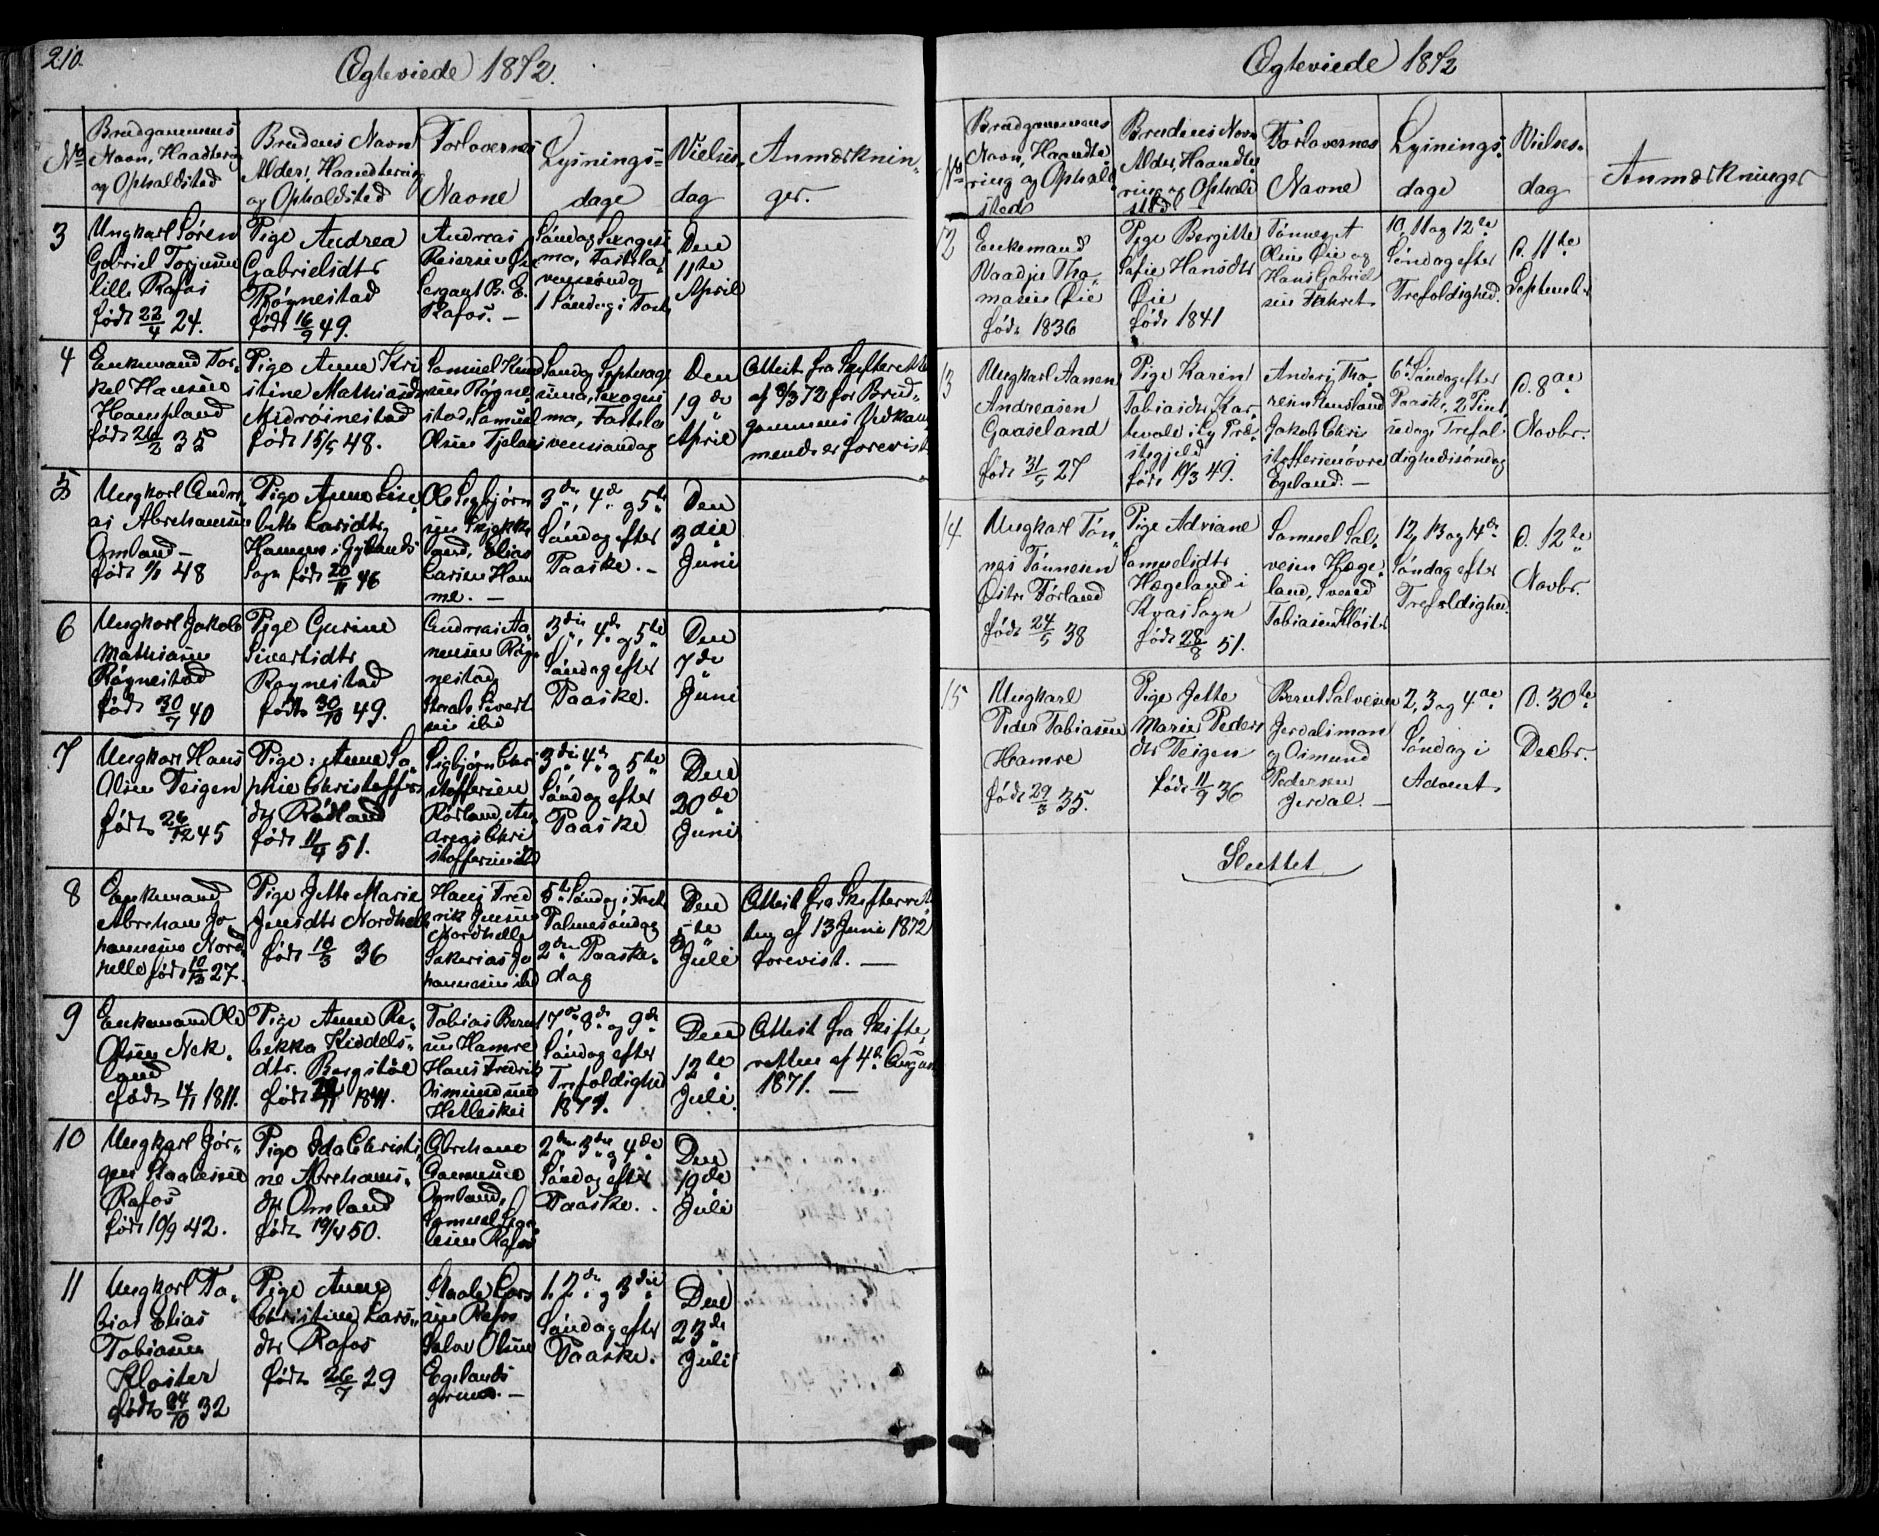 210.
Ægteviede 1872.
No
Brudgommens
Navn, Haandtering
og Opholdsted
Brudens Navn
Alder, Haandtering
og Opholdsted
Forlovernes
Navne
Lysnings-
dage
Vielses-
dag
Anmærknin-
ger.
3
Ungkarl Søren
Gabriel Torjusen
lille Rafos
født 22/4 24.
Pige Andrea
Gabrielsdtr
Røgnestad
født 16/9 49.
Andreas
Reiersen
Sergant B. E.
Rafos. –
Søndag Sexagesi
ma, Fastela
venssøndag
1 Søndag i Faste
Den
11te
April
4
Enkemand Tor-
kel Hansen
Haugland
født 26/2 35
Pige Anne Kri
stine Mathiasd
Midrøinestad
født 15/5 48.
Samuel Knud
sen Røgne-
stad, Samuel
Olsen Tjelans
Søndag Septuage
sima, Sexagesi
ma, Fastela
venssøndag
Den
19de
April
Attest fra Skifteretten
af 8/3 72 for Brud-
gommens Vedkom
mende er forevist
5
Ungkarl Andre
as Abrahamsen
Omland –
født 1/1 48
Pige Anne Lise
beth Larsdtr
Hamre i Gylands
Sogn født 20/11 46
Ole Sigbjørn
sen
land, Elias
Larsen Ham
re. –
3die, 4de og 5te
Søndag efter
Paaske. –
Den
3die
Juni
6
Ungkarl Jakob
Mathiasen
Røgnestad
født 30/7 40
Pige Gurine
Sivertsdtr
Røgnestad
født 30/10 49.
Andreas Aa
nensen Røg-
nestad
Sivert
sen ibd
3die, 4de og 5te
Søndag efter
Paaske.
Den
7de
Juni
7
Ungkarl Hans
Olsen Teigen
født 26/12 45
Pige: Anne So
phie Christoffers
dtr Rødland
født 11/4 51.
Sigbjørn Chri
stoffersen
Rørland, An
dreas Chri
stoffersen ibd
3die 4de og 5te
Søndag efter
Paaske
Den
20de
Juni
8
Enkemand
Abraham Jo
hannesen Nord
helle født 10/12 27.
Pige Jette Marie
Jensdtr Nordhelle
født 10/3 36
Hans Fred
rik Jensen
Nordhelle
Sakarias Jo
hannesen ibd
5te Søndag i Faste
Palmesøndag
2den Paaske-
dag
Den
5te
Juli
Attest fra Skifteret
ten af 13 Juni 1872
forevist. —
9
Enkemand Ole
Olsen Nek-
land
født 4/1 1811.
Pige Anne Re-
bekka Kiddels-
dtr. Bergstøl
født 1841.
Tobias Bernt
sen Hamre
Hans Fredrik
Osmundsen
Helleskei
17de 8de og 9de
Søndag efter
Trefoldighed
1871.
Den
12te
Juli.
Attest fra Skifte-
retten af 4de August
1871. —
10
Ungkarl Jør-
gen Staalesen
Rafos
født 10/9 42.
Pige Ida Christi
ne Abrahams-
dtr Omland
født 19/4 50.
Abraham
Aanensen
Omland,
Samuel
Rafos
2den 3die og 4de
Søndag efter
Paaske.
Den
19de
Juli
11
Ungkarl To-
bias Elias
Tobiasen
Kloster
født 24/10 32
Pige Anne
Christine Lars-
dtr Rafos
født 26/7 29
Staale Lars
sen Rafos
Salve Olsen
Egelands
1, 2den og 3die
Søndag efter
Paaske.
Den
23de
Juli
Ægteviede 1872
No
Brudgommens
Navn, Haandte-
ring og Ophold
sted
Brudens Navn
Alder, Haandte
ring og Ophold
sted
Forlovernes
Navne
Lysnings-
dage
Vielses-
dag
Anmærkninger
12
Enkemand
Tho-
masen Øie
født 1836
Pige Bergitte
Sofie Hansdtr
Øie
født 1841
Tønnes A
Olsen Øie og
Hans Gabriel
sen
10, 11 og 12te
Søndag efter
Trefoldighed.
D. 11te
September
13
Ungkarl Aanen
Andreasen
Gaaseland
født 31/5 27
Pige Karin
Tobiasdtr
i Ly Præ-
stegjeld
født 19/3 49.
Anders Tho-
resen
Jakob Chri
stoffersen øvre
Egeland. —
6te Søndag efter
Paaske, 2 Pint
sedag, Trefol-
dighedssøndag
D. 8de
Novbr.
14
Ungkarl Tøn-
nes Tønnesen
Østre Førland
født 24/5 38
Pige Adriane
Samuelsdtr
Hægeland i
Kvas Sogn
født 28/8 51.
Samuel Sal-
vesen Hæge-
land, Svend
Tobiasen Kloster
12, 13 og 14de
Søndag efter
Trefoldighed
D. 12te
Novbr.
15
Ungkarl
Peder Tobiasen
Hamre
født 29/3 35.
Pige Jette
Marie Peders
dtr Teigen
født 11/9 36
Bernt Salvesen
Jerdalsmon
og Osmund
Pedersen
Jerdal. —
2, 3 og 4de
Søndag i
Advent
D. 30te
Decbr.
Sluttet